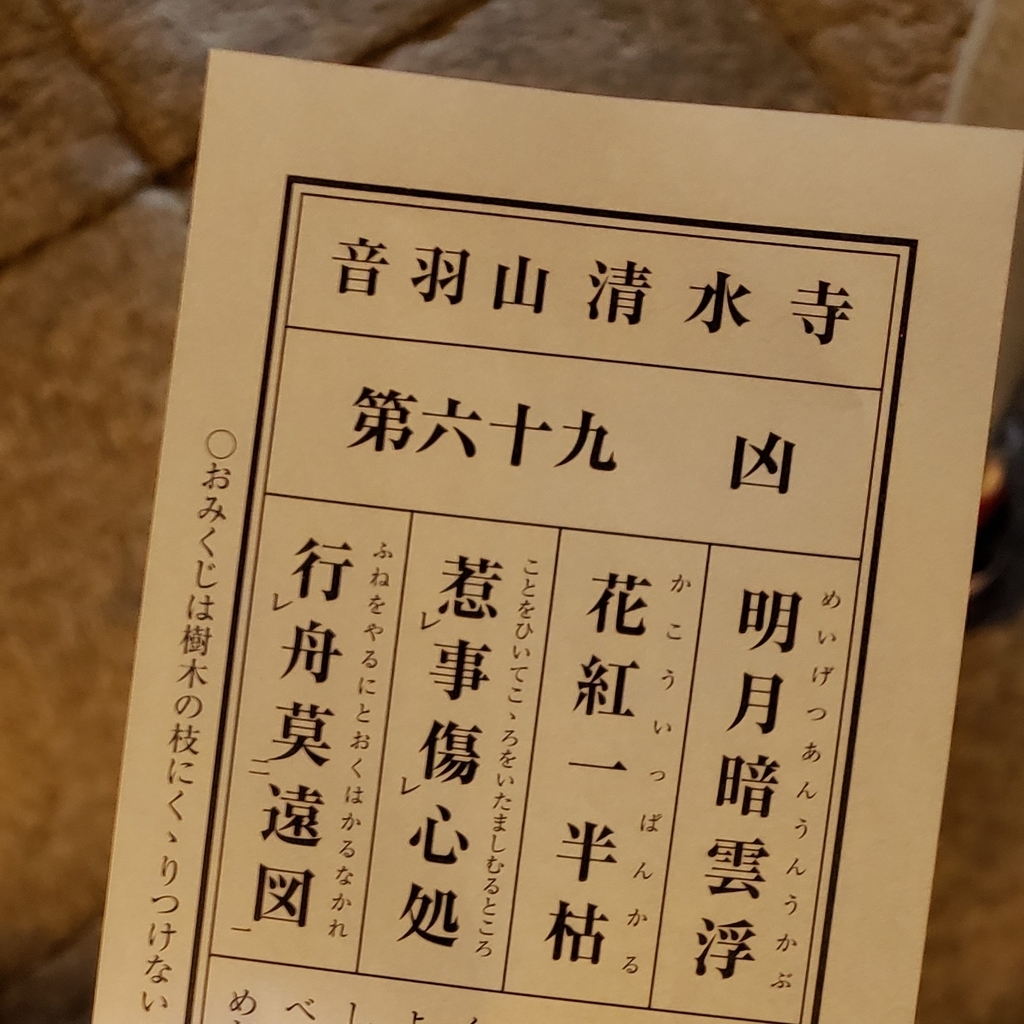 音羽山清水寺
第六十九 凶
めいげつあんうんうかぶ
明月暗雲浮
かこういっぱんかる
花紅一半枯
ことをひいてこゝろをいたましむるところ
惹レ事傷レ心処
ふねをやるにとおくはかるなかれ
行レ舟莫二遠図一
〇おみくじは樹木の枝にくゝりつけない